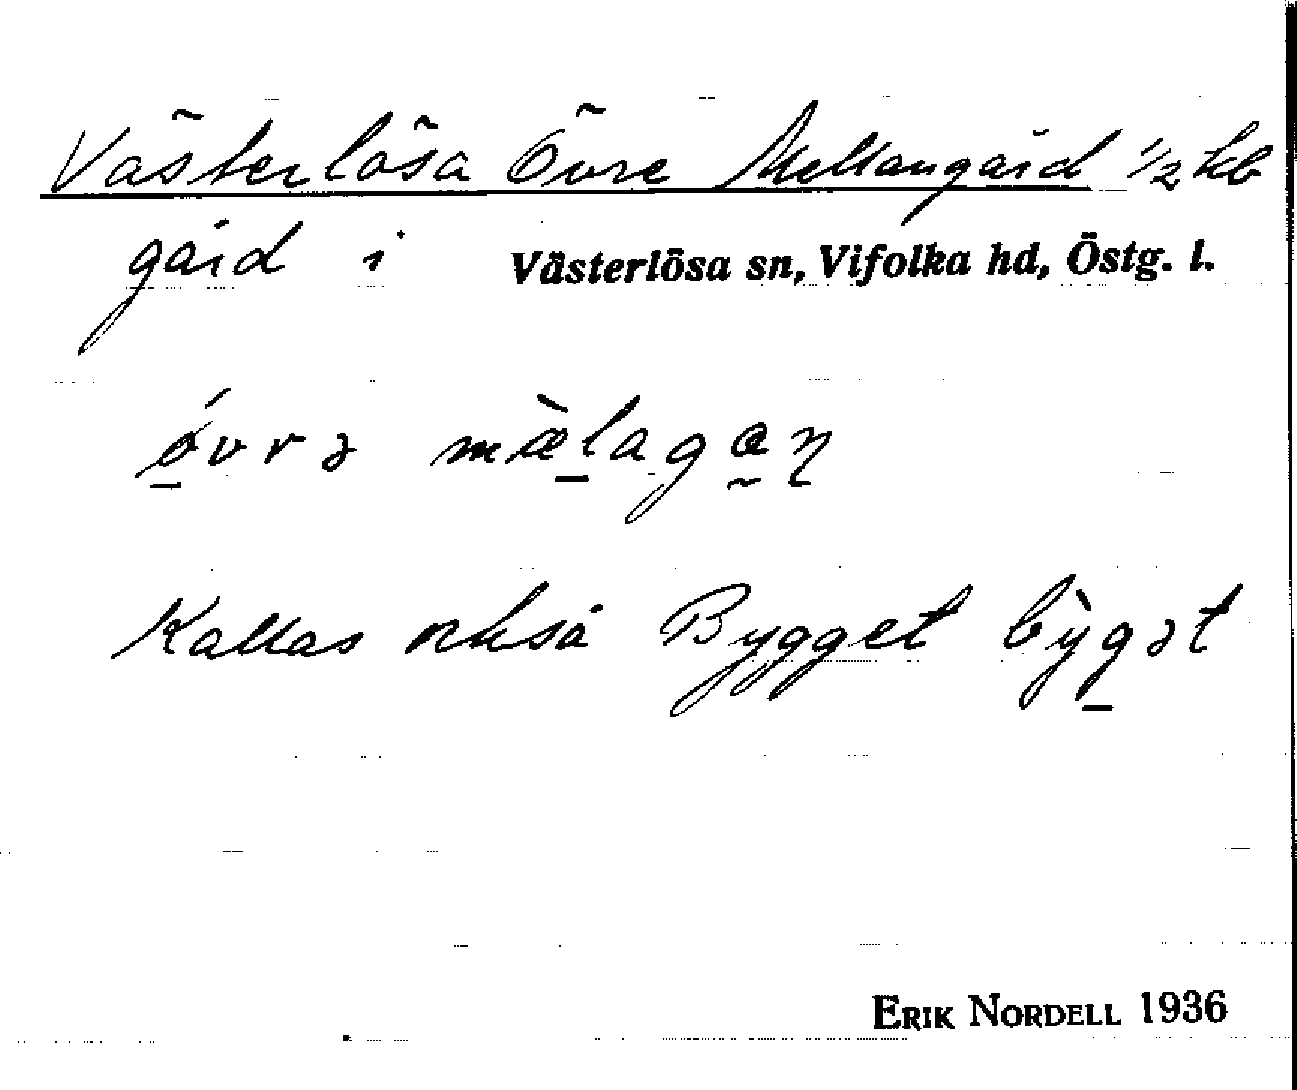 Västerlösa Övre Mellangård 1/2 hb
gård i Västerlösa sn, Vifolka hd, Östg. l.
ǿ̱vrə mæ̱̀lagæ̰ɳ
Kallas också Bygget bỳg̱ət
ERIK NORDELL 1936